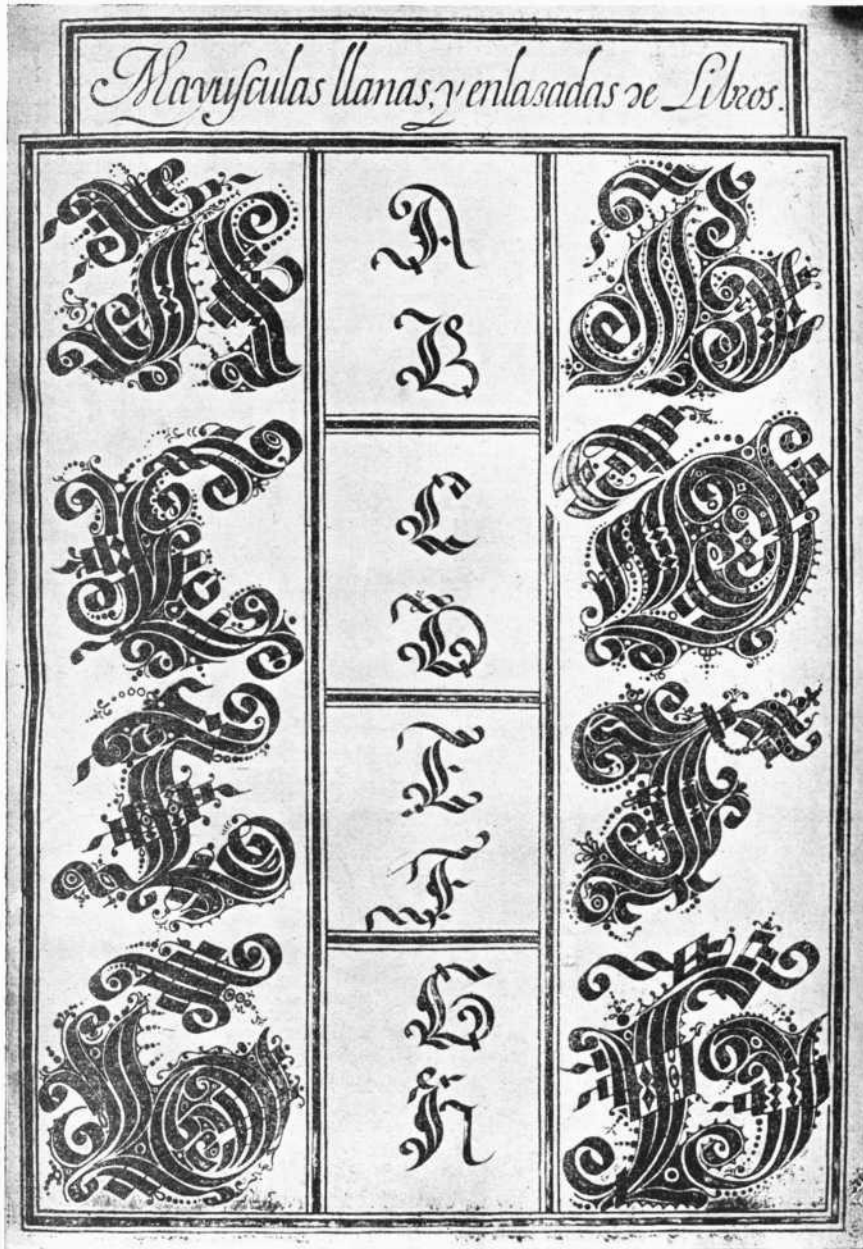 Mayuſculas llanas, y enlazadas de Libros.
A
B
C
D
E
F
G
H
A
B
C
D
E
F
G
H